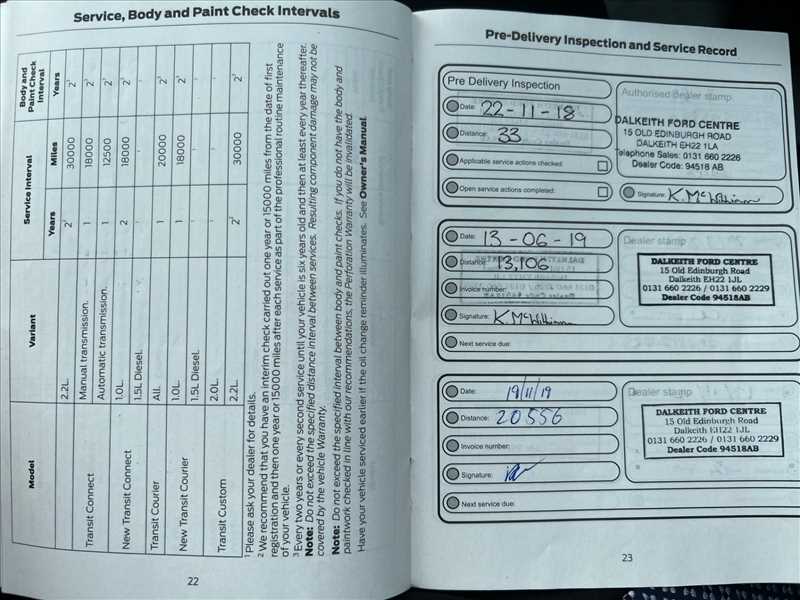 Service, Body and Paint Check Intervals
Model Variant Service Interval Body and Paint Check Interval
Years Miles Years
2.2L. 2¹ 30000 2¹
Transit Connect Manual transmission. 1 18000 2³
Automatic transmission. 1 12500 2³
New Transit Connect 1.0L. 2 18000 2¹
1.5L Diesel. ¹ ¹ ¹
Transit Courier All. 1 20000 2³
New Transit Courier 1.0L. 1 18000 2³
1.5L Diesel. ¹ ¹ ¹
Transit Custom 2.0L. ¹ ¹ ¹
2.2L. 2² 30000 2²
¹ Please ask your dealer for details.
² We recommend that you have an interim check carried out one year or 15000 miles from the date of first
registration and then one year or 15000 miles after each service as part of the professional routine maintenance
of your vehicle.
³ Every two years or every second service until your vehicle is six years old and then at least every year thereafter.
Note: Do not exceed the specified distance interval between services. Resulting component damage may not be
covered by the vehicle Warranty.
Note: Do not exceed the specified interval between body and paint checks. If you do not have the body and
paintwork checked in line with our recommendations, the Perforation Warranty will be invalidated.
Have your vehicle serviced earlier if the oil change reminder illuminates. See Owner's Manual.
22
Pre-Delivery Inspection and Service Record
Pre Delivery Inspection
Date: 22-11-18
Distance: 33
Applicable service actions checked:
Open service actions completed:
Authorised dealer stamp
DALKEITH FORD CENTRE
15 OLD EDINBURGH ROAD
DALKEITH EH22 1LA
Telephone Sales: 0131 660 2226
Dealer Code: 94518 AB
Signature: K. McWilliam
Date: 13-06-19
Distance: 13,106
Invoice number:
Signature: K. McWilliam
Next service due:
Dealer stamp
DALKEITH FORD CENTRE
15 Old Edinburgh Road
Dalkeith EH22 1JL
0131 660 2226 / 0131 660 2229
Dealer Code 94518AB
Date: 19/11/19
Distance: 20556
Invoice number:
Signature:
Next service due:
Dealer stamp
DALKEITH FORD CENTRE
15 Old Edinburgh Road
Dalkeith EH22 1JL
0131 660 2226 / 0131 660 2229
Dealer Code 94518AB
23